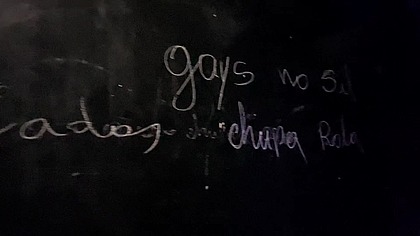 gays no si
ados chupa Rola